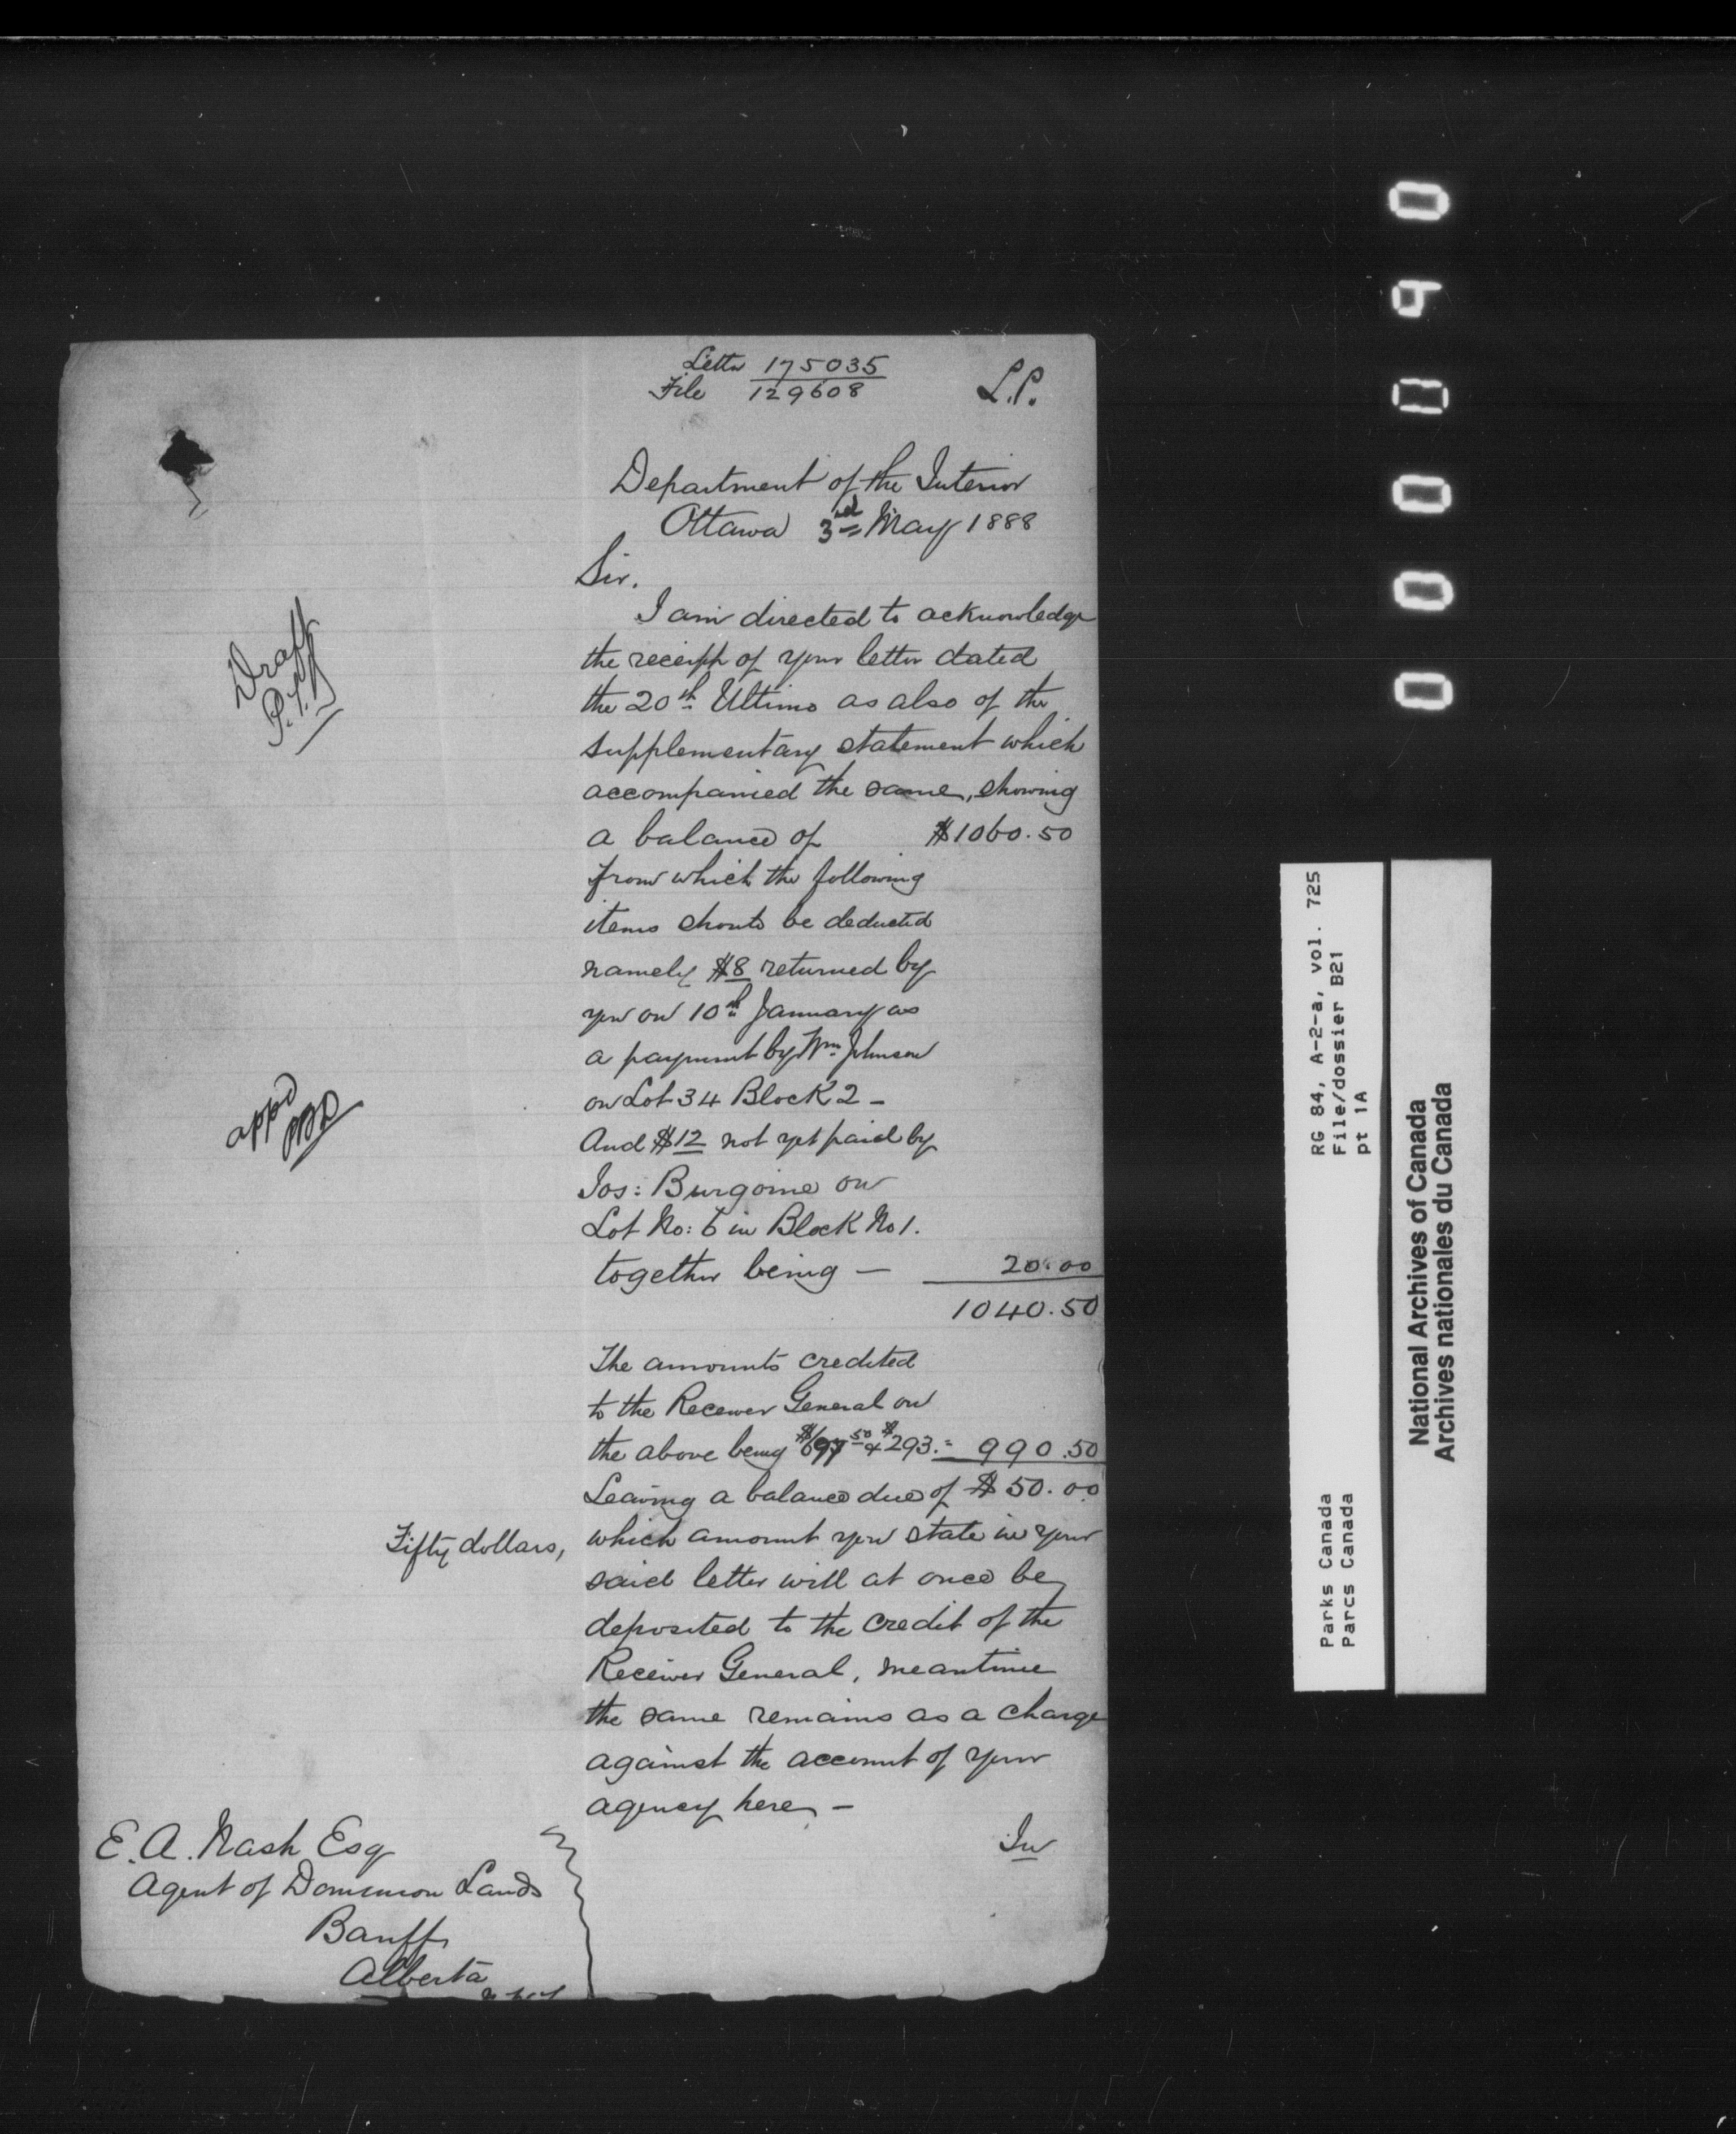 Letter 175035
File 129608
L.P.
Department of the Interior
Ottawa 3rd May 1888
Sir.
I am directed to acknowledge
the receipt of your letter dated
the 20th Ultimo as also of the
supplementary statement which
accompanied the same, showing
a balance of $1060.50
from which the following
items should be deducted
namely $8 returned by
you on 10th January as
a payment by Wm Johnson
on Lot 34 Block 2 –
And $12 not yet paid by
Jos: Burgoine on
Lot No: 6 in Block No 1.
together being — 20.00
1040.50
The amounts credited
to the Receiver General on
the above being $697.50 & $293.= 990.50
Leaving a balance due of $50.00
Fifty dollars, which amount you state in your
said letter will at once be
deposited to the credit of the
Receiver General, meantime
the same remains as a charge
against the account of your
agency here –
In
Draft
appd
E. A. Nash Esq
Agent of Dominion Lands
Banff
Alberta
000090
RG 84, A-2-a, vol. 725
File/dossier B21
pt 1A
Parks Canada
Parcs Canada
National Archives of Canada
Archives nationales du Canada